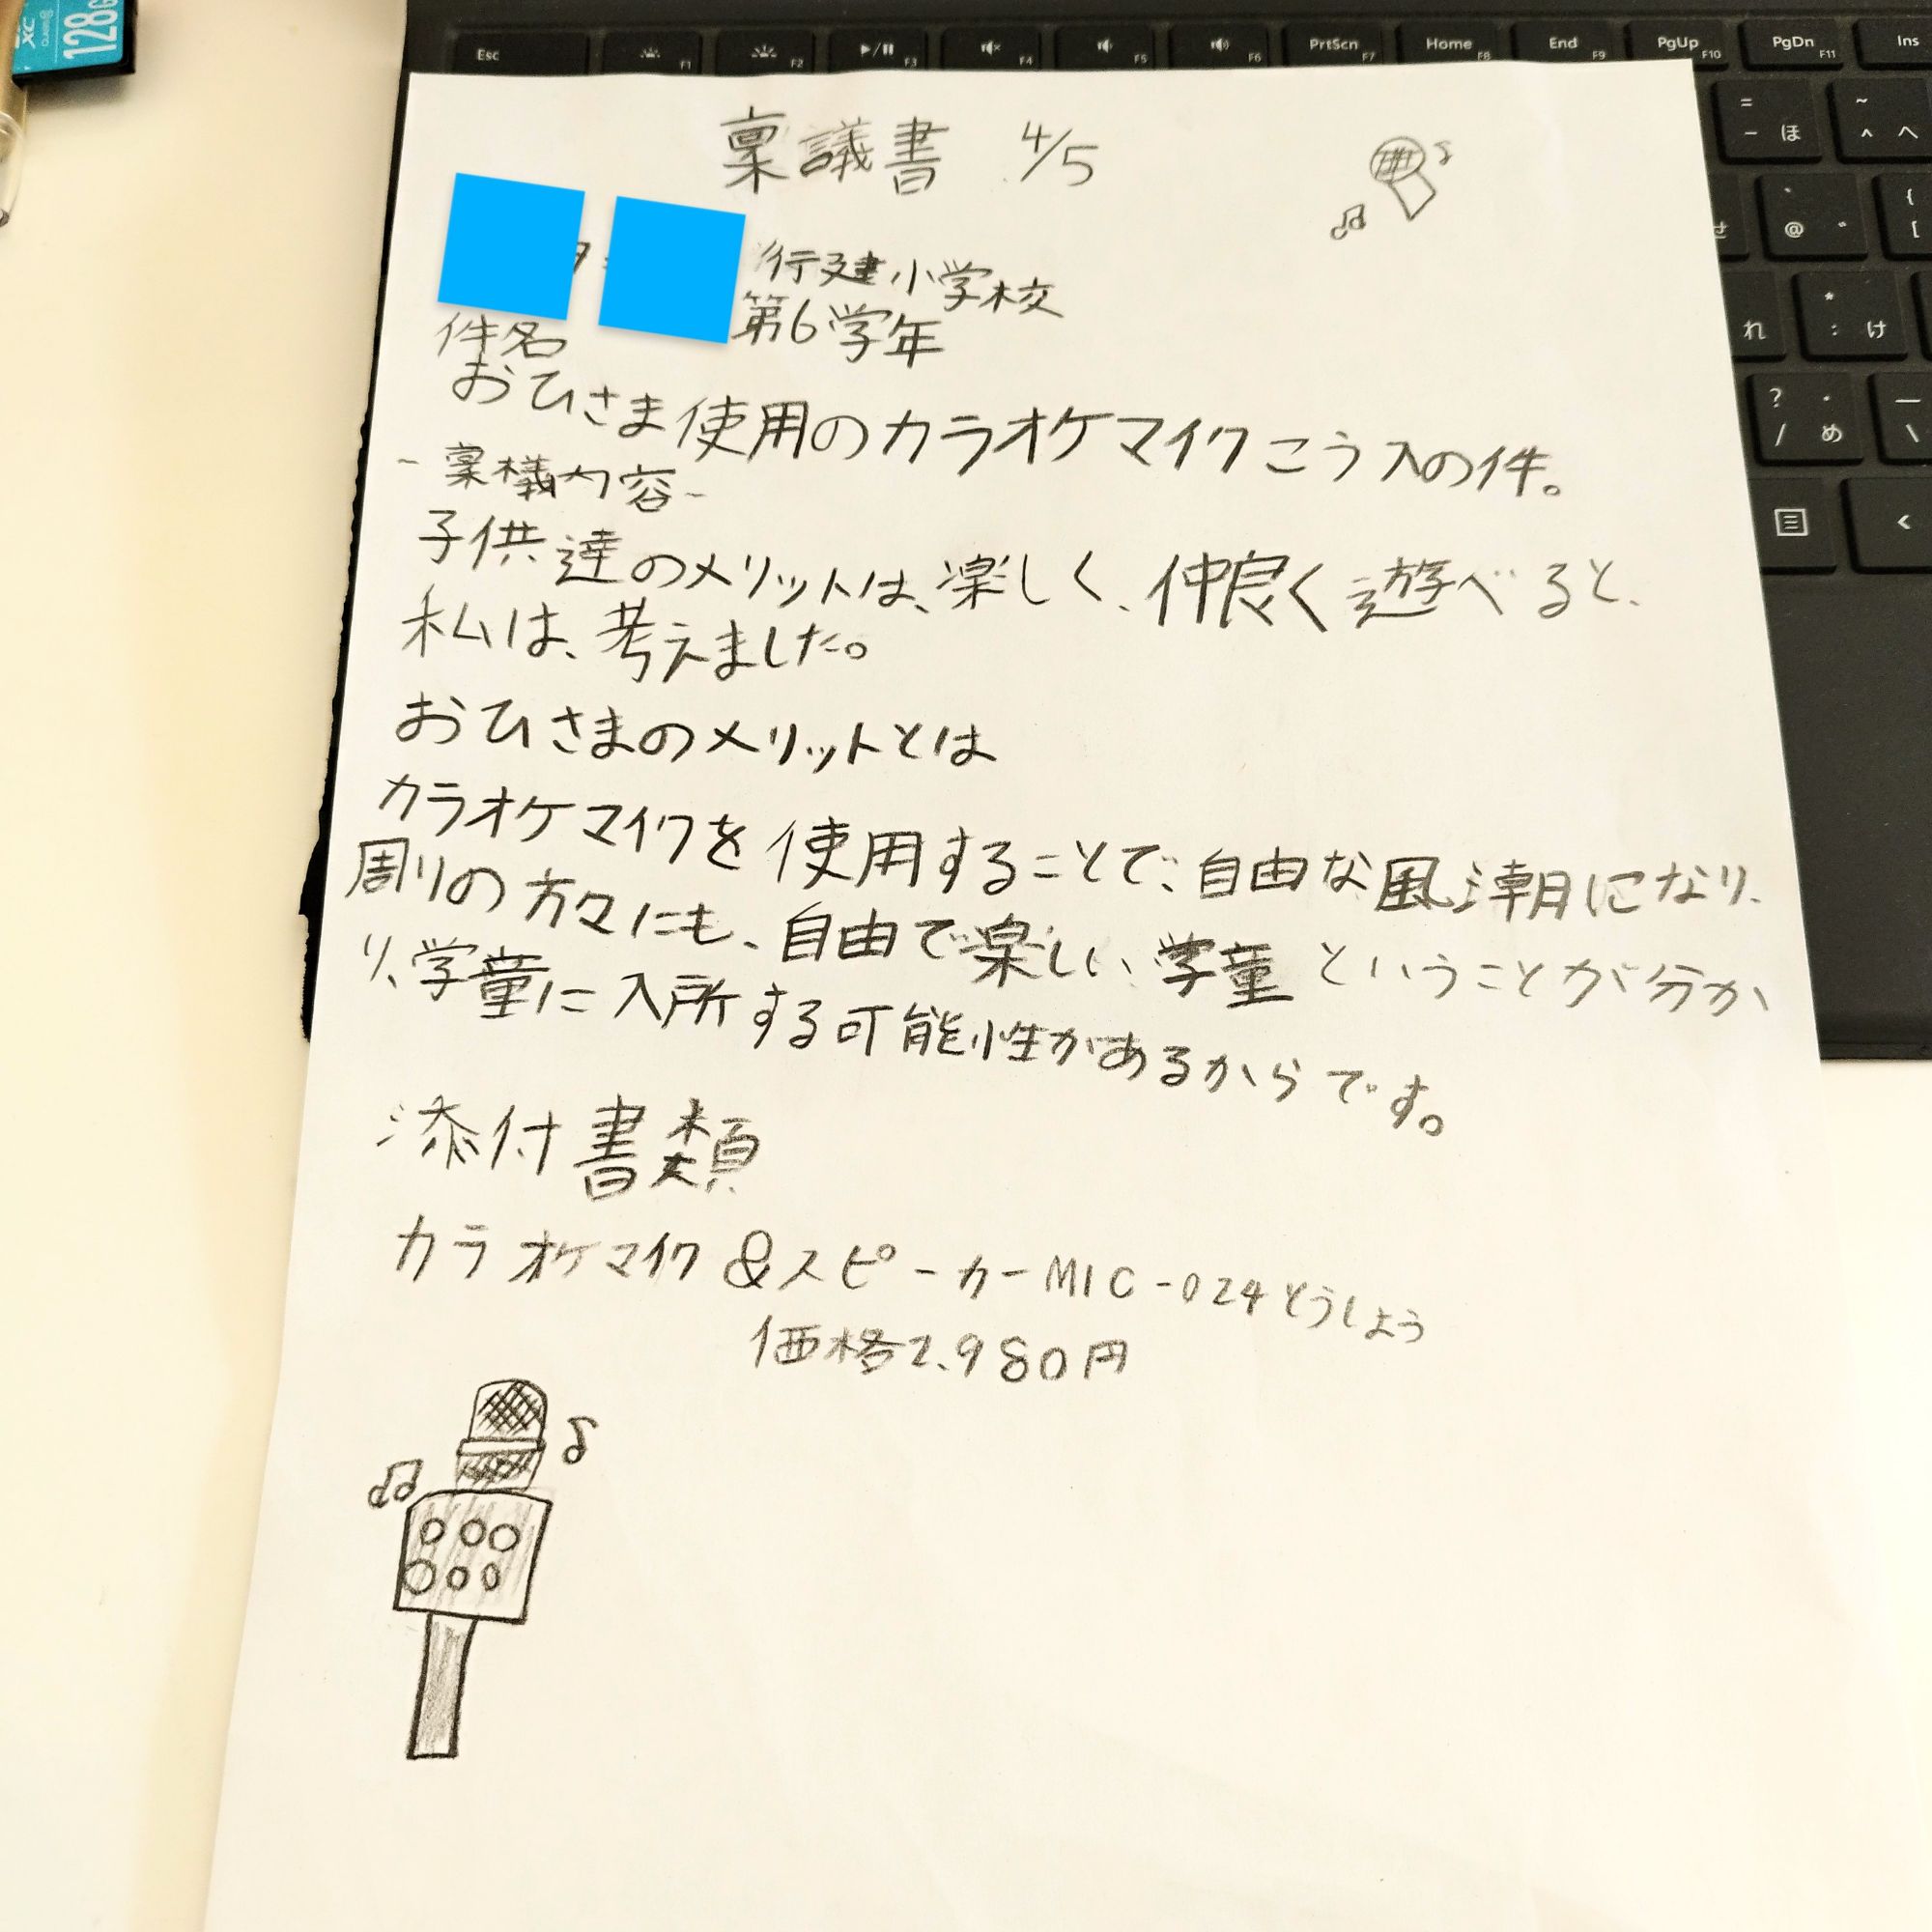 128G
XC
Esc
F1
F2
F3
F4
F5
F6
PrtScn
F7
Home
F8
End
F9
PgUp
F10
PgDn
F11
Ins
=
- ほ
~
^ へ
せ
@ ゛
{
[
れ
*
: け
?
・
/ め
\
<
稟議書 4/5
行建小学校
第6学年
件名
おひさま使用のカラオケマイクこう入の件。
-稟議内容-
子供達のメリットは、楽しく、仲良く遊べると、
私は、考えました。
おひさまのメリットとは
カラオケマイクを使用することで、自由な風潮になり、
周りの方々にも、自由で楽しい、学童ということが分か
り、学童に入所する可能性があるからです。
添付書類
カラオケマイク&スピーカーMIC-024とうしよう
価格2.980円